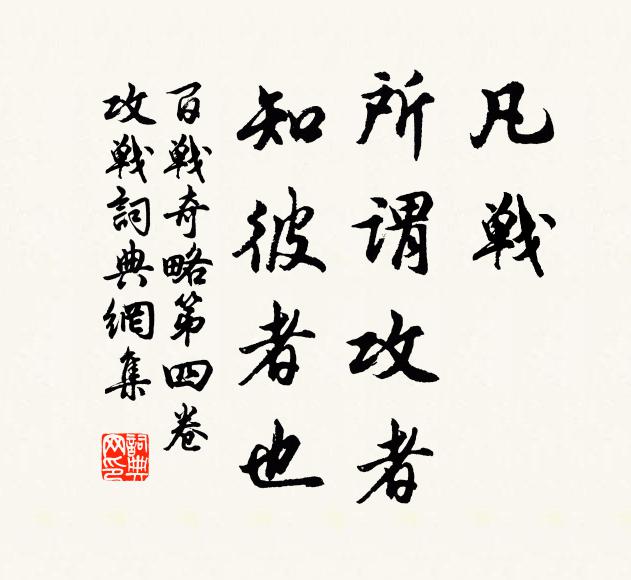 凡戰
所謂攻者
知彼者也
百戰奇略第四卷
攻戰詞典網集
詞典網印